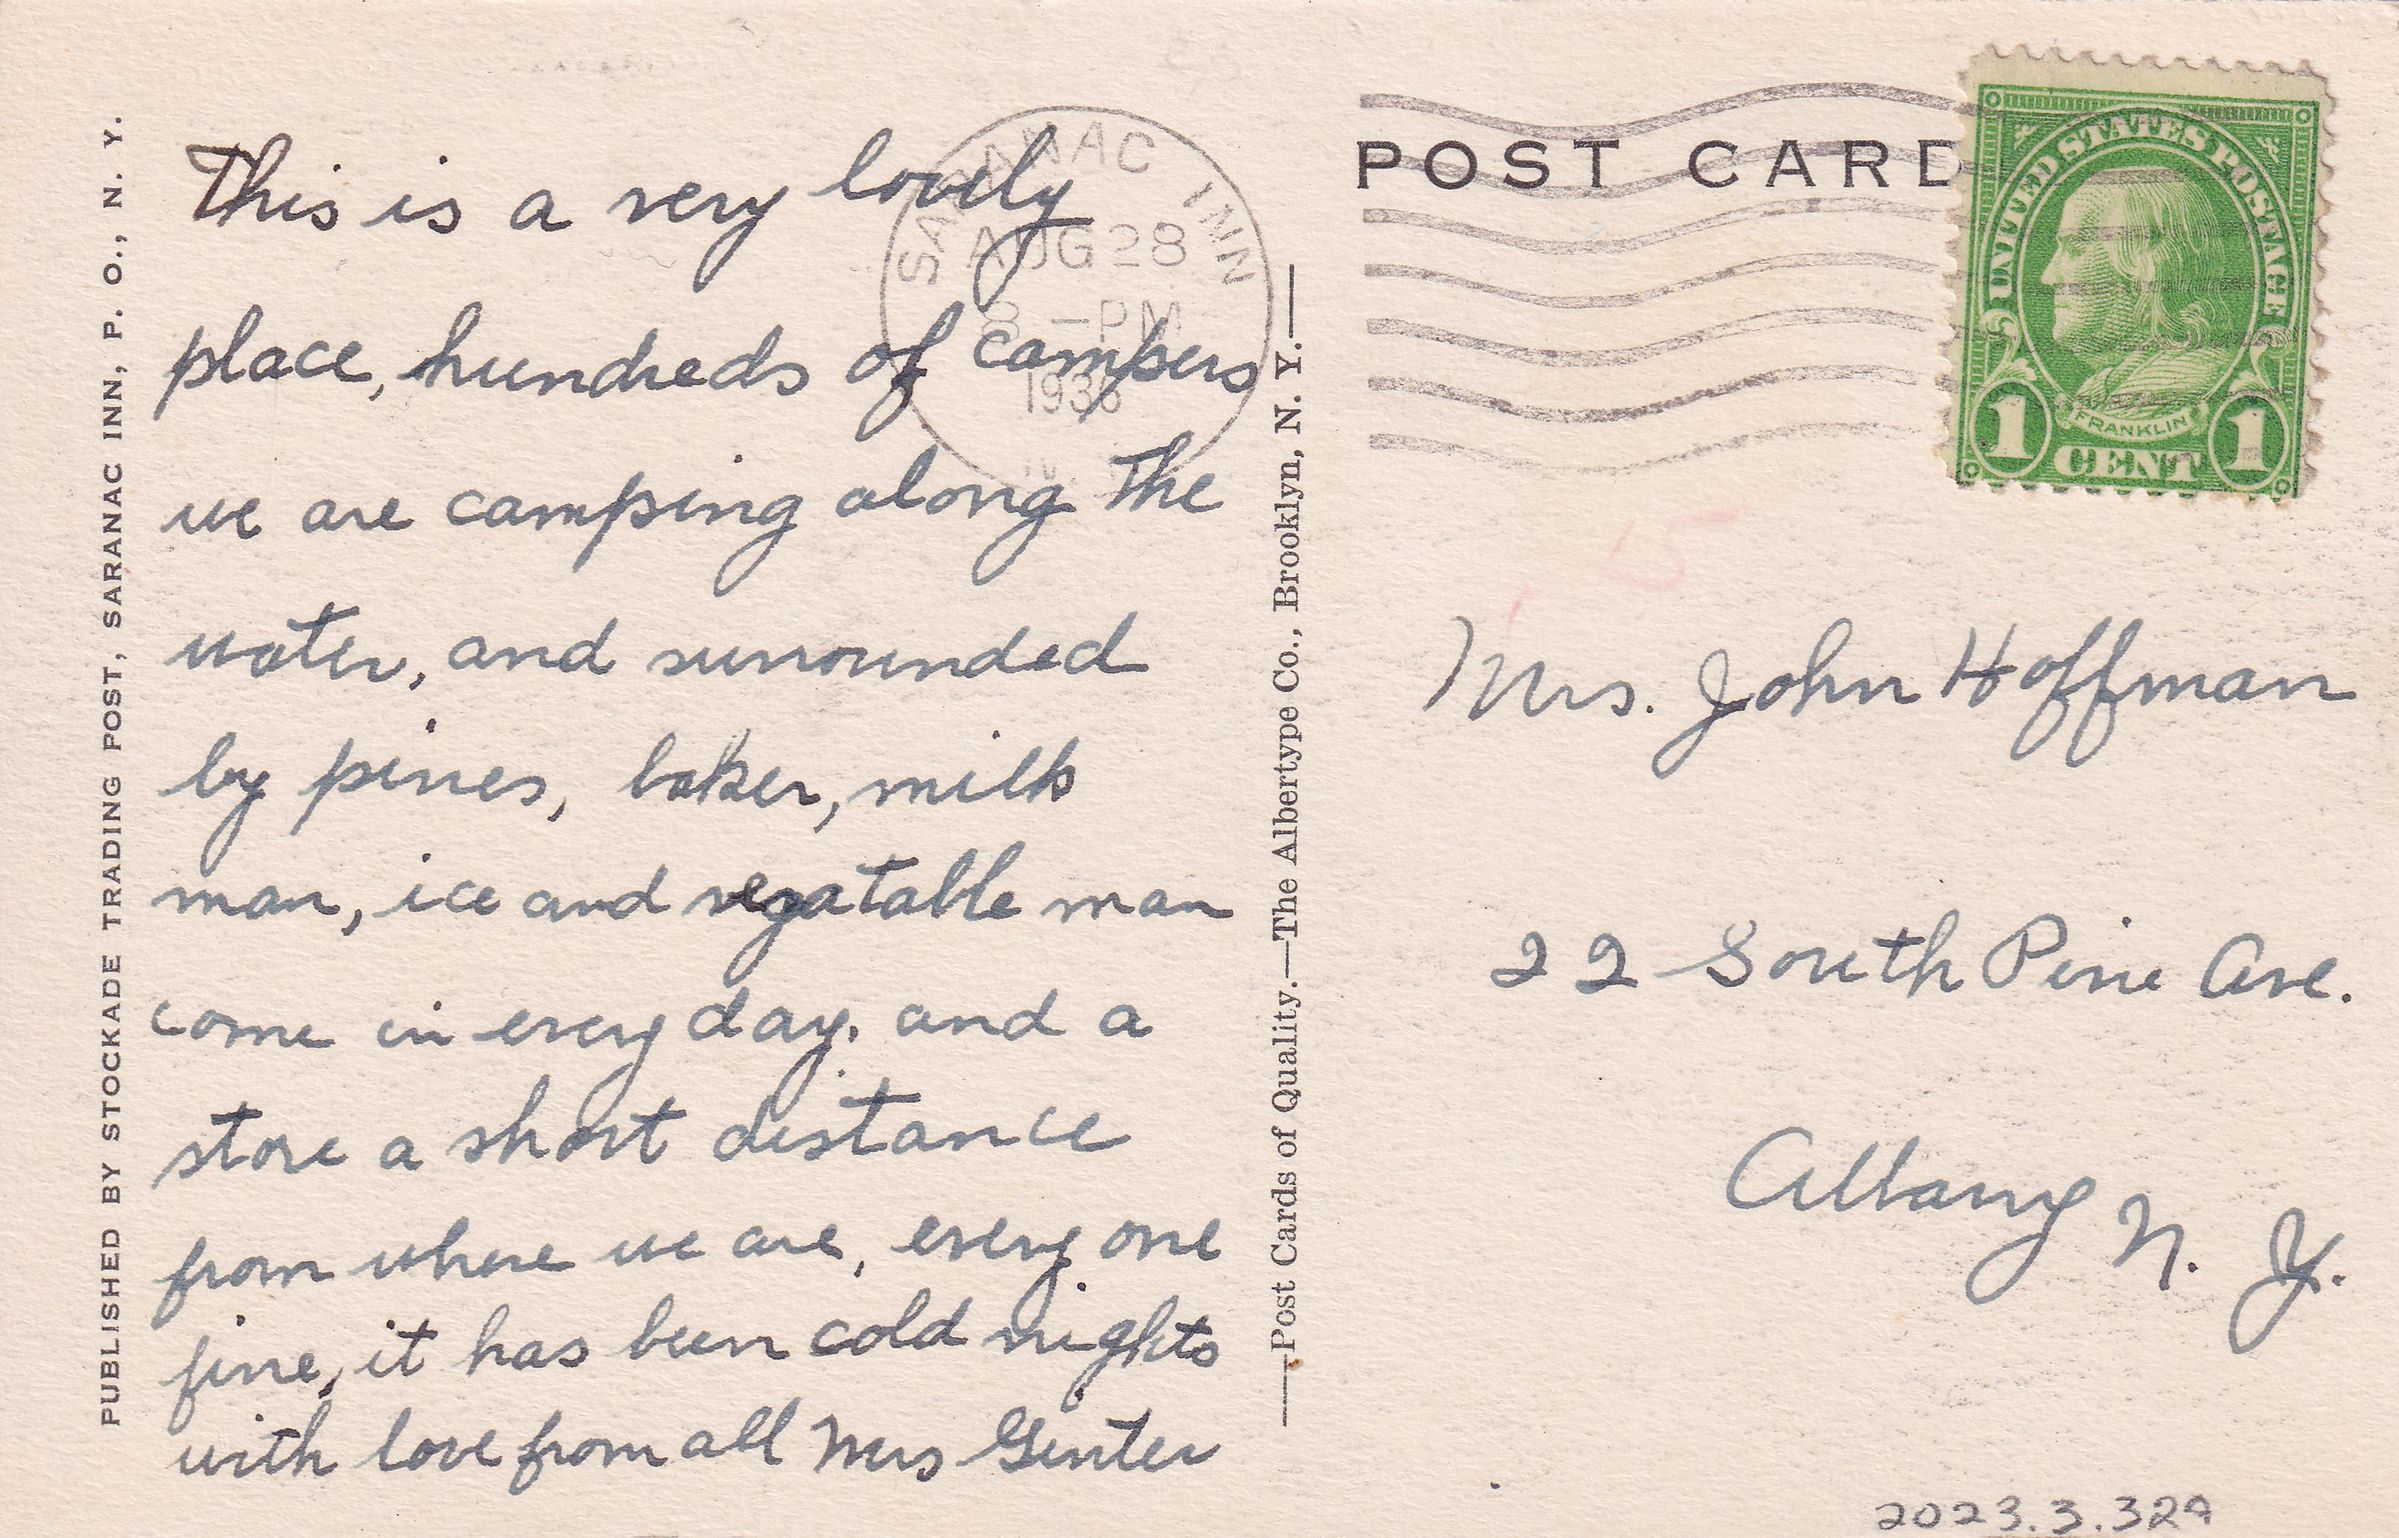 PUBLISHED BY STOCKADE TRADING POST, SARANAC INN, P. O., N. Y.
This is a very lovely
place, hundreds of campers
we are camping along The
water, and surrounded
by pines, baker, milk
man, ice and vegatable man
come in every day. and a
store a short distance
from where we are, every one
fine, it has been cold nights
with love from all Mrs Genter
SARANAC INN
AUG 28
8 - PM
N.
——Post Cards of Quality.—The Albertype Co., Brooklyn, N. Y.——
POST CARD
UNITED STATES POSTAGE
FRANKLIN
1 CENT 1
Mrs. John Hoffman
22 South Pine Ave.
Albany N. Y.
2023.3.329